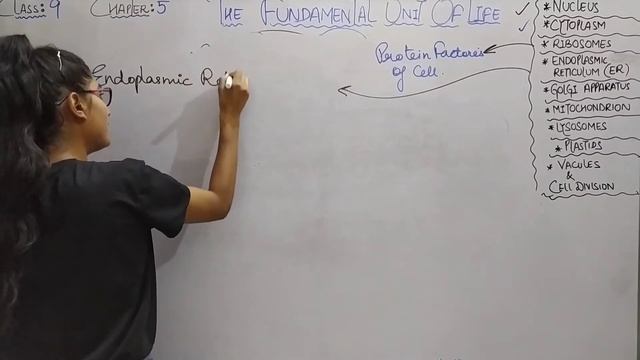 CLASS: 9 CHAPTER: 5 THE FUNDAMENTAL UNIT OF LIFE
Protein Factories
of Cell.
Endoplasmic Re
* NUCLEUS
* CYTOPLASM
* RIBOSOMES
* ENDOPLASMIC
RETICULUM (ER)
* GOLGI APPARATUS
* MITOCHONDRION
* LYSOSOMES
* PLASTIDS
* VACULES
&
CELL DIVISION